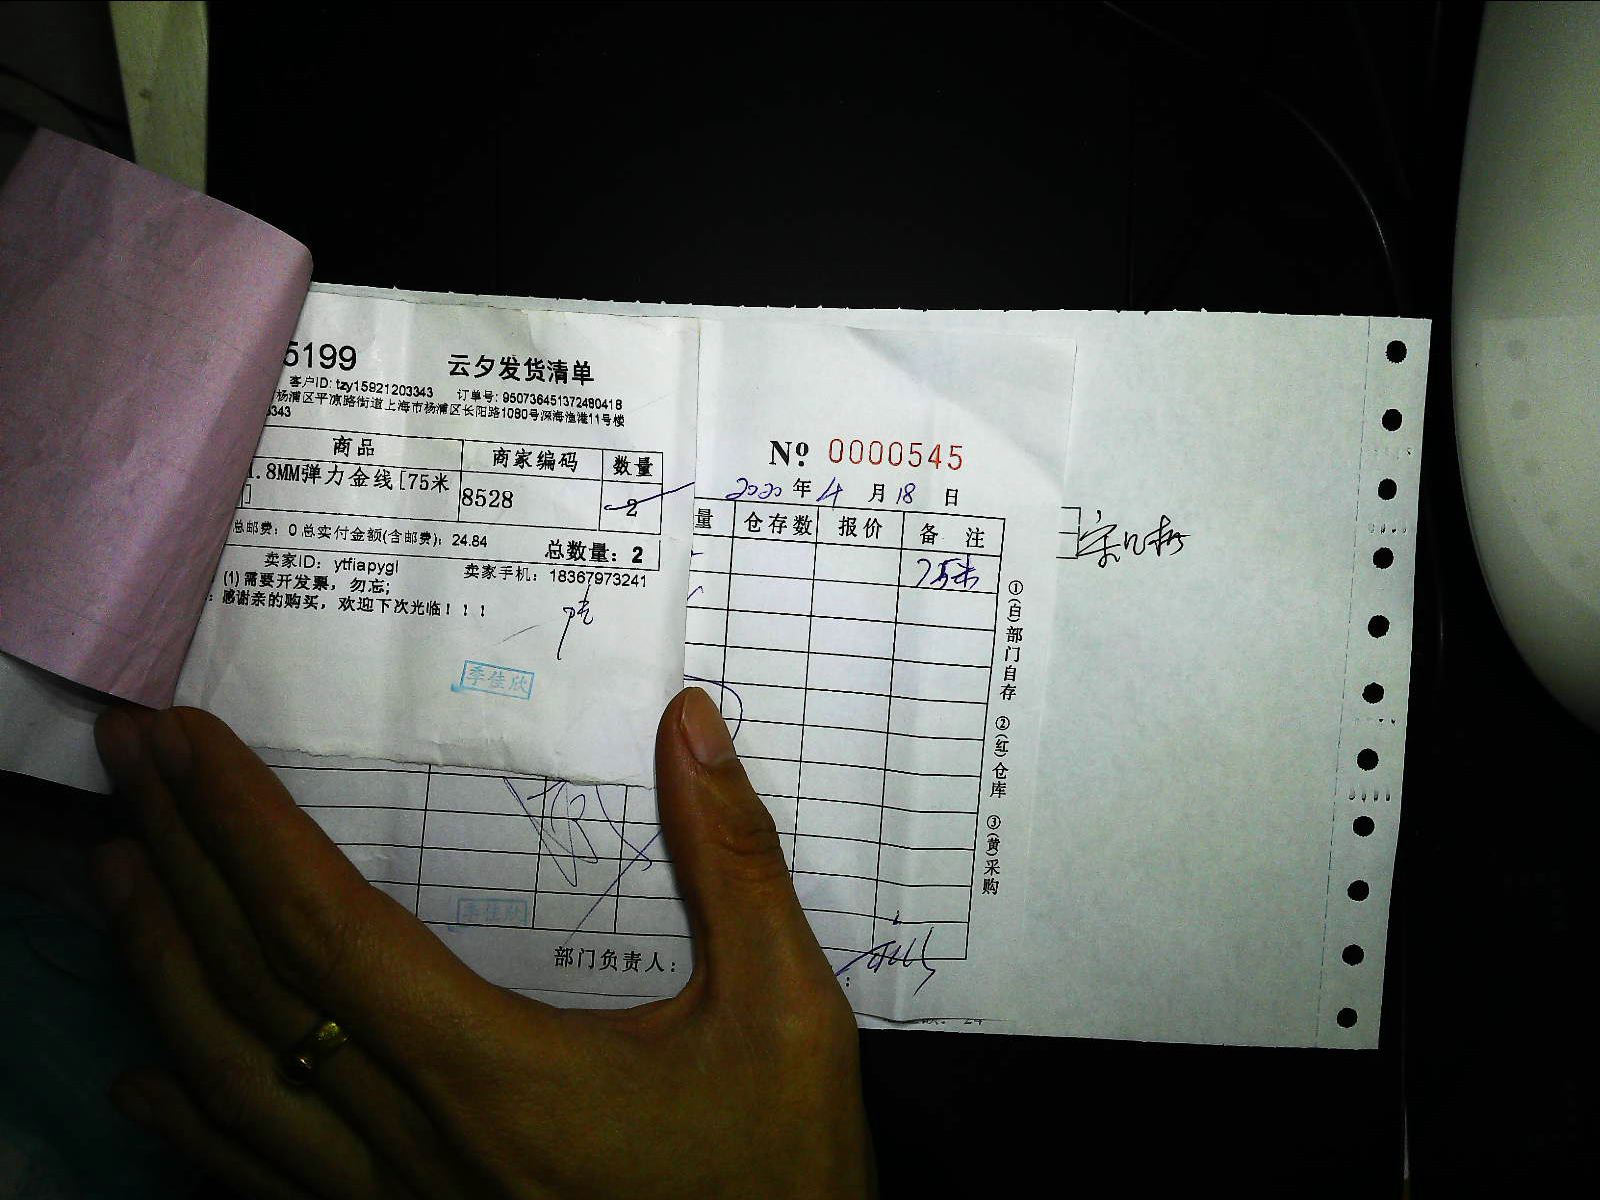 5199 云夕发货清单
客户ID: tzy15921203343 订单号: 950736451372480418
杨浦区平凉路街道上海市杨浦区长阳路1080号深海渔港11号楼
3343
商品 商家编码 数量
1.8MM弹力金线[75米
] 8528 2
总邮费: 0 总实付金额(含邮费): 24.84 总数量: 2
卖家ID: ytfiapygl 卖家手机: 18367973241
(1)需要开发票, 勿忘;
: 感谢亲的购买, 欢迎下次光临! ! !
季佳欣
№ 0000545
2020 年 4 月 18 日
量 仓存数 报价 备 注
75米
①(白)部门自存 ②(红)仓库 ③(黄)采购
季佳欣
部门负责人: